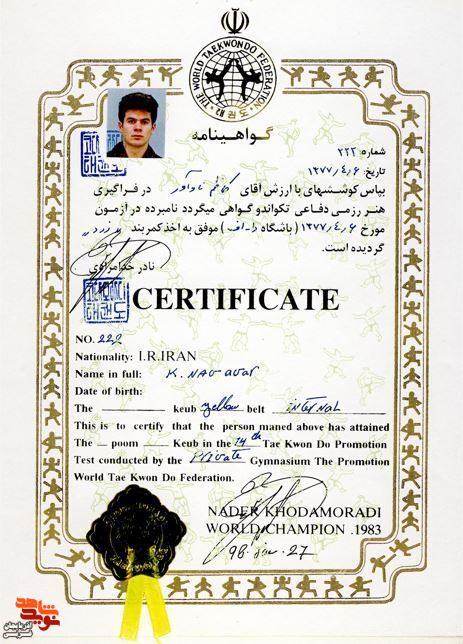 THE WORLD TAEKWONDO FEDERATION
태권도
گواهینامه
شماره ۲۲۲
تاریخ: ۱۳۷۷/۴/۶
بپاس کوششهای با ارزش آقای کاظم ناوآور در فراگیری
هنر رزمی دفاعی تکواندو گواهی میگردد نامبرده در آزمون
مورخ ۱۳۷۷/۴/۶ ( باشگاه ) موفق به اخذ کمربند زرد
گردیده است.
نادر خدامرادی
CERTIFICATE
NO. 222
Nationality: I.R.IRAN
Name in full: K. NAVavar
Date of birth:
The keub yellow belt internal
This is to certify that the person maned above has attained
The poom Keub in the 14th Tae Kwon Do Promotion
Test conducted by the private Gymnasium The Promotion
World Tae Kwon Do Federation.
NADER KHODAMORADI
WORLD CHAMPION .1983
98. jun. 27
نوید شاهد
آذربایجان غربی